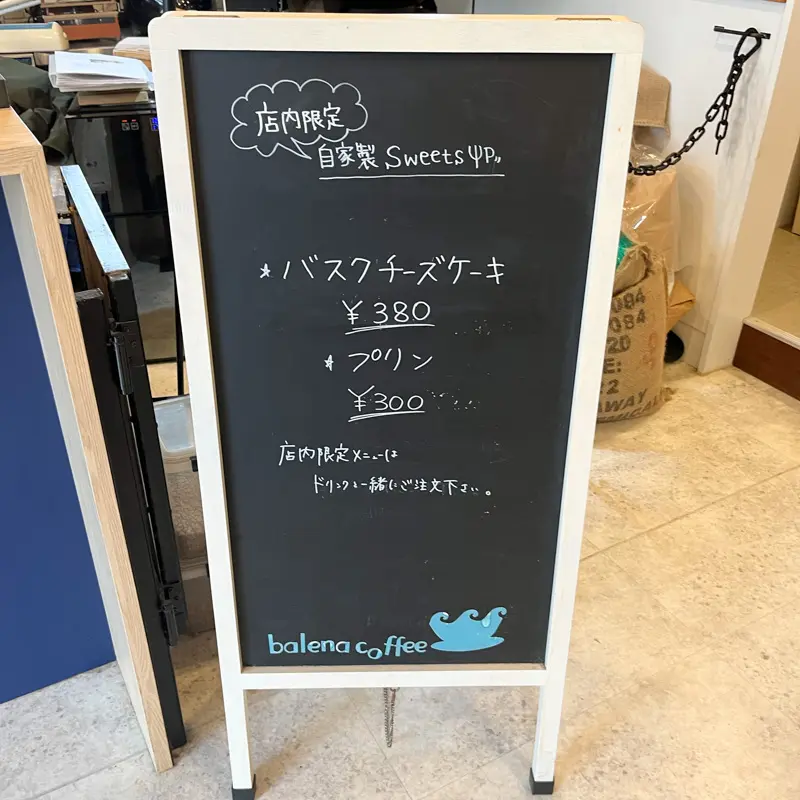 店内限定
自家製 Sweets
★ バスクチーズケーキ
¥380
★ プリン
¥300
店内限定メニューは
ドリンクと一緒にご注文下さい。
balena coffee
084
084
2D
E:
2
AWAY